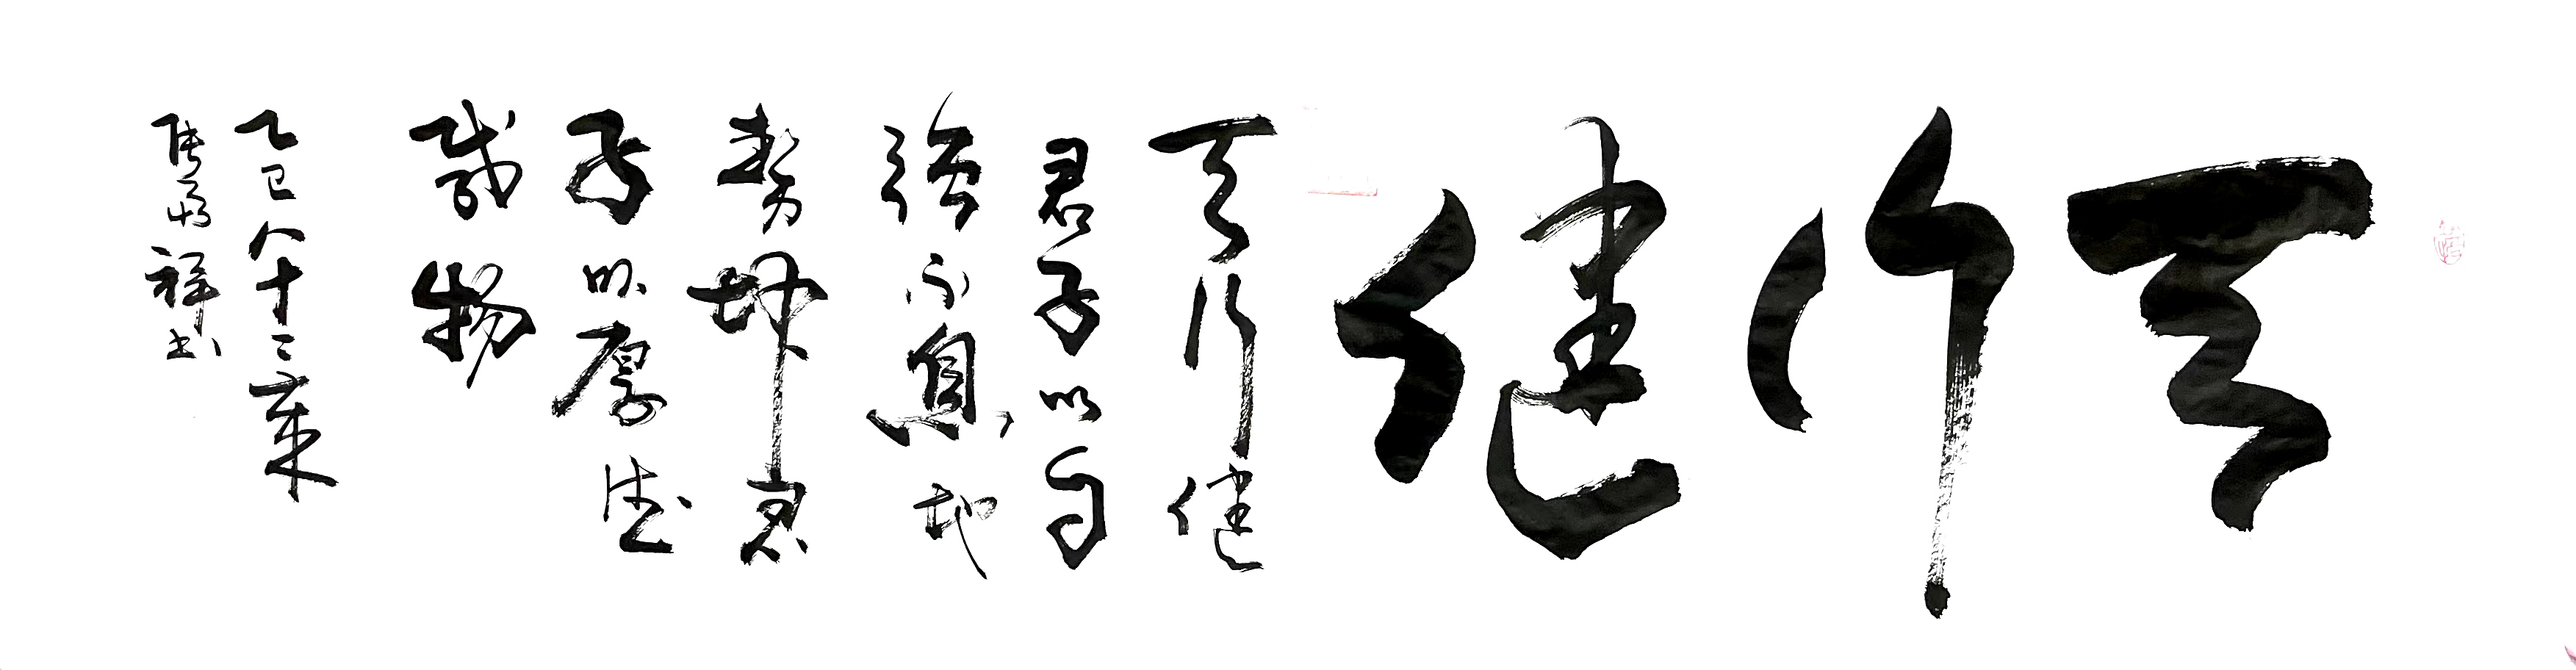 天行健
天行健
君子以自
强不息地
势坤君
子以厚德
载物
乙巳八十三叟
张 祥书